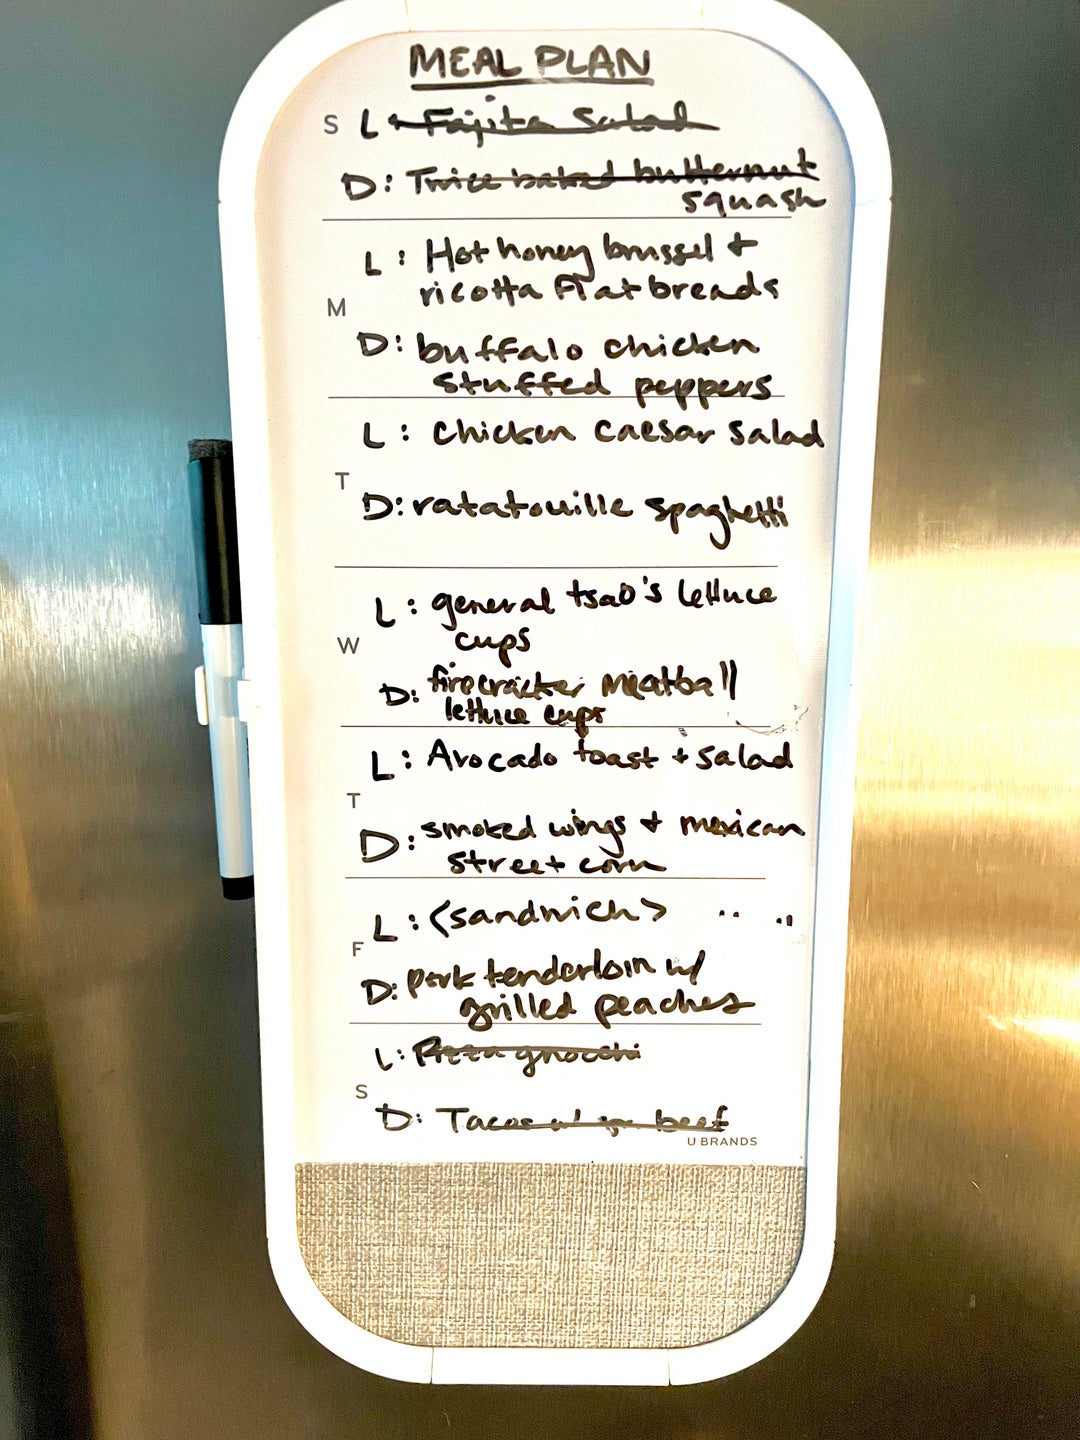 MEAL PLAN
S L: Fajita Salad
D: Twice baked butternut
squash
L: Hot honey brussel +
ricotta flatbreads
M
D: buffalo chicken
stuffed peppers
L: Chicken Caesar Salad
T
D: ratatouille spaghetti
L: general tsao's lettuce
cups
W
D: firecracker meatball
lettuce cups
L: Avocado toast + salad
T
D: smoked wings + mexican
street corn
L: <sandwich>
F
D: pork tenderloin w/
grilled peaches
L: Pizza gnocchi
S
D: Tacos beef
U BRANDS